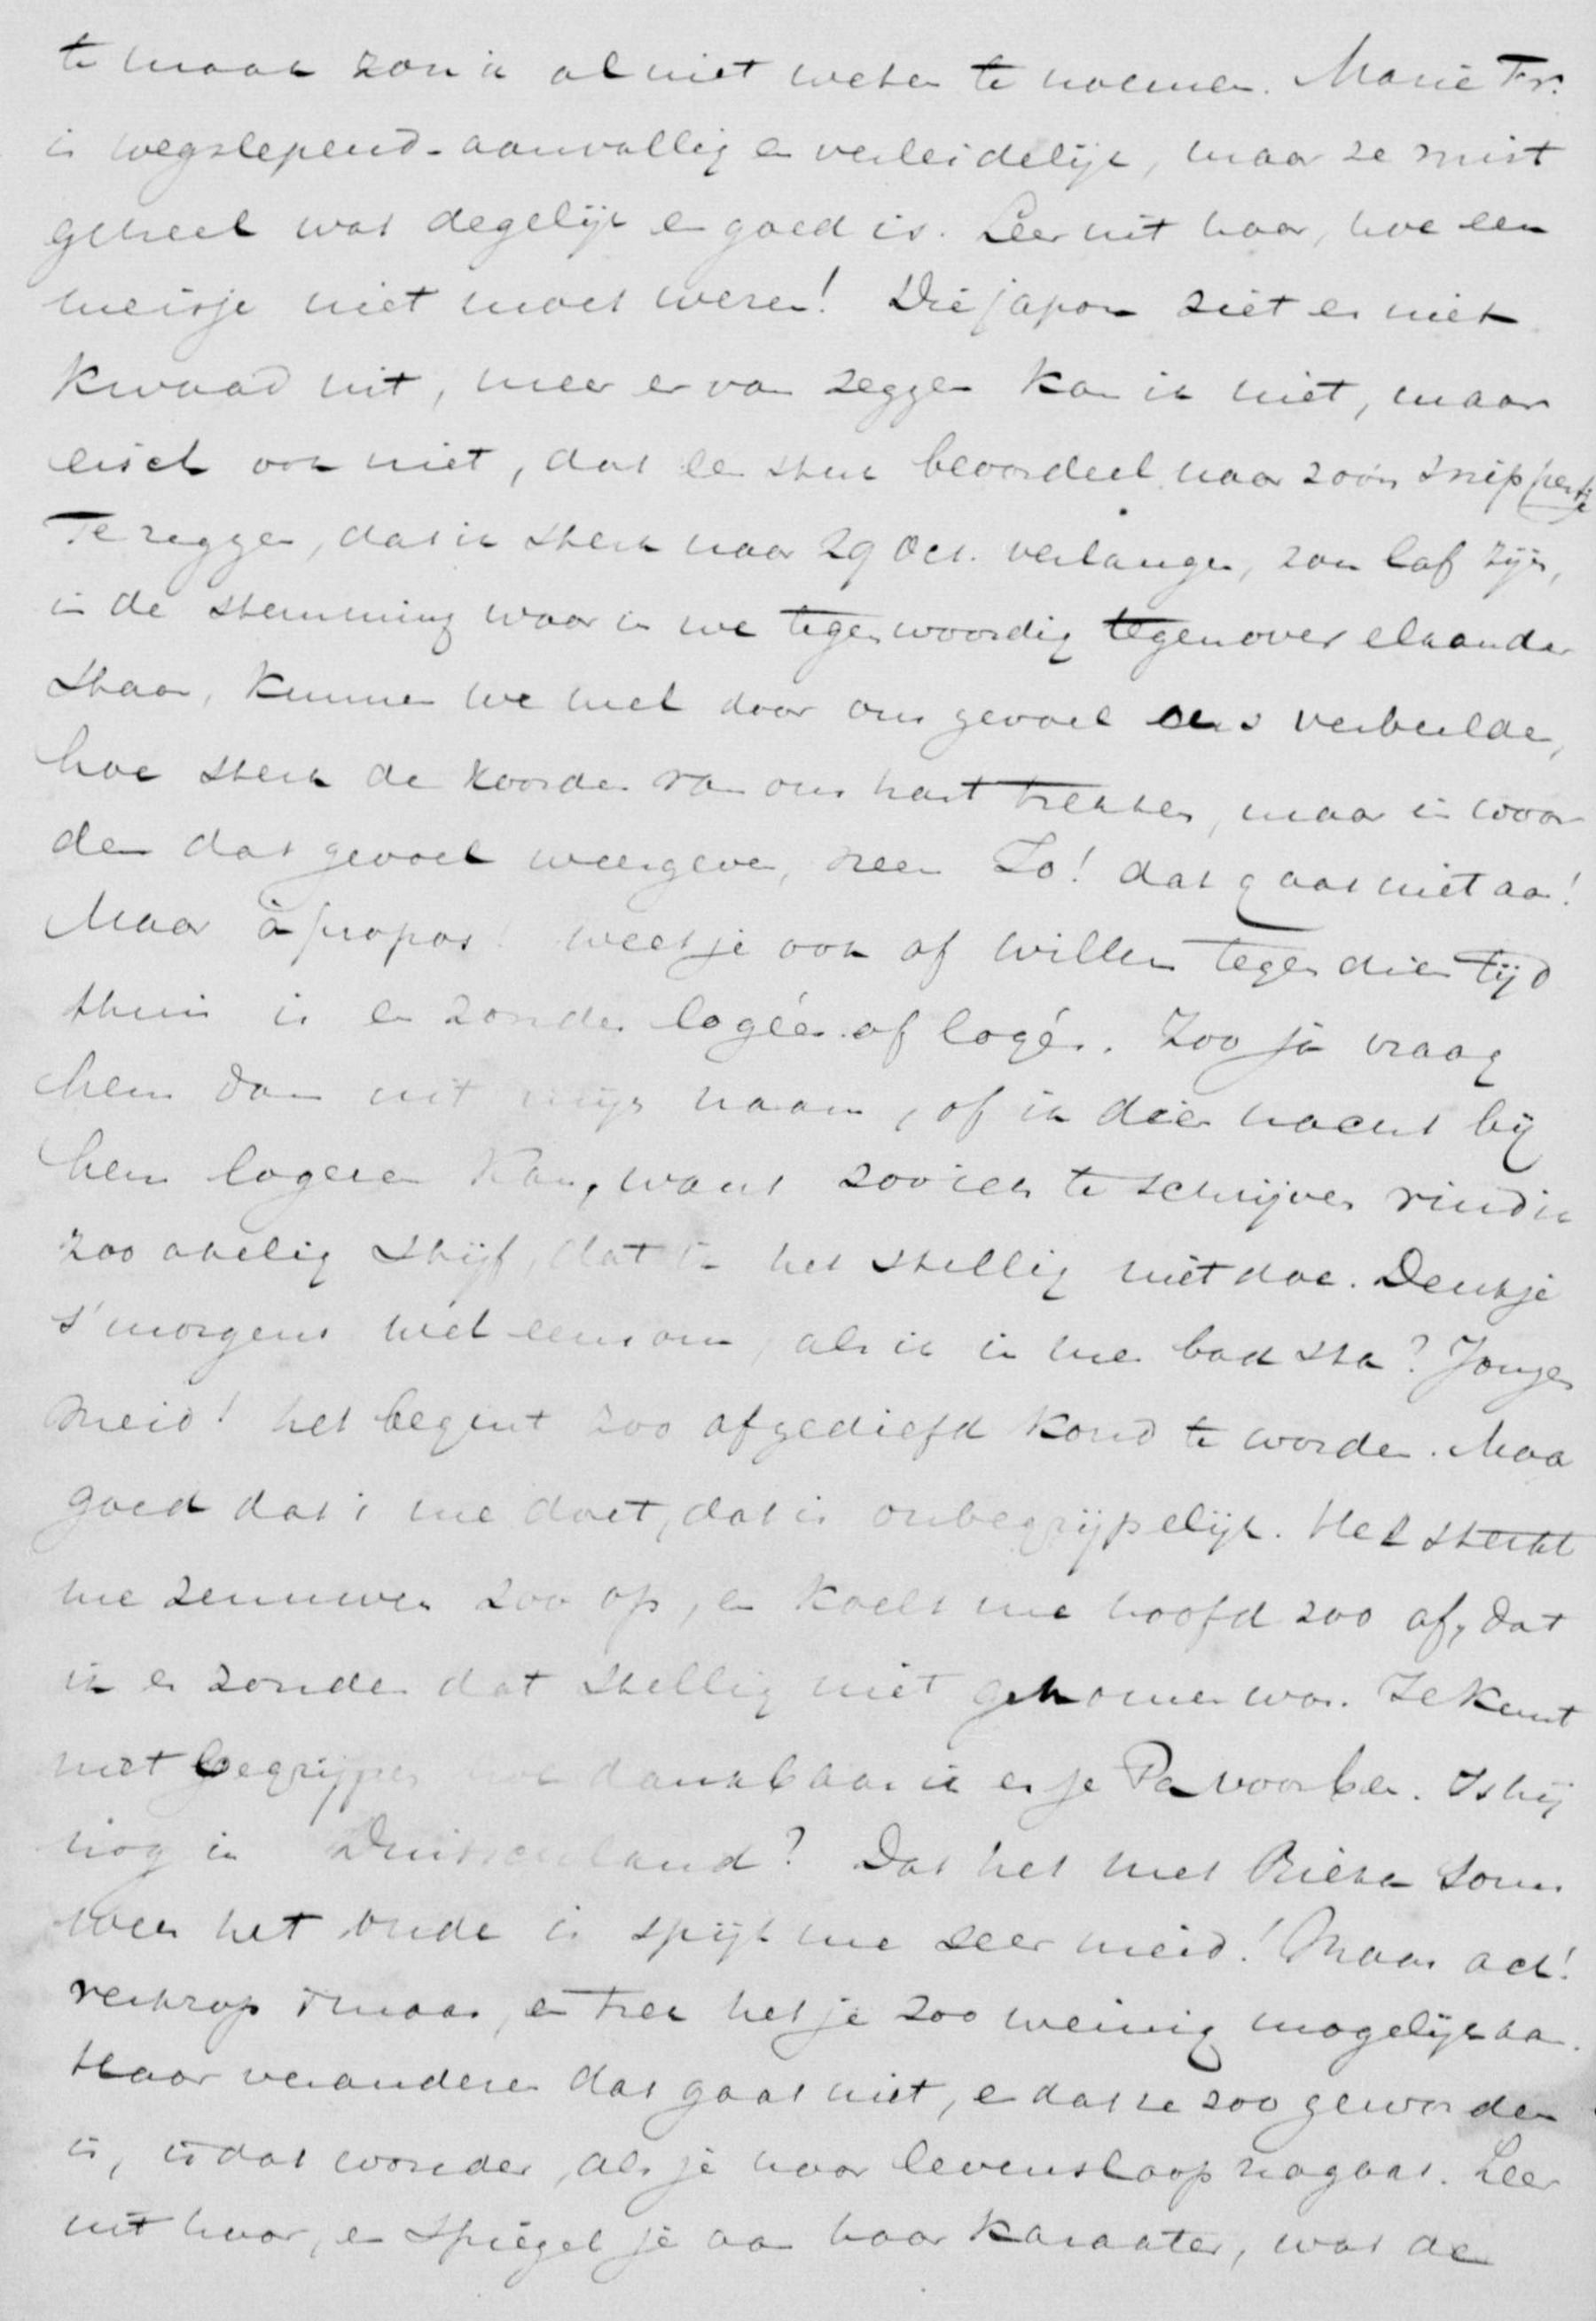 te maak zou ik al niet weten te noemen. Marie Fr.
is wegslepend-aanvallig en verleidelijk, maar ze mist
geheel wat degelijk en goed is. Leer uit haar, hoe een
meisje niet moet wezen! Die japon ziet er niet
kwaad uit, meer er van zeggen kan ik niet, maar
eisch ook niet, dat een stuk beoordeel naar zoo'n snippertje
Te zeggen, dat ik sterk naar 29 Oct. verlangen, zou laf zijn,
in de stemming waar in we tegenwoordig tegenover elkander
staan, kunnen we wel door ons gevoel ons verbeelden,
hoe sterk de koorden van ons hart trekken, maar in woor
den dat gevoel weergeven, neen Lo! dat gaat niet aan!
Maar à propos! weet je ook of Willem tegen dien tijd
thuis is en zonder logées of logés. Zoo ja vraag
hem dan uit mijn naam, of ik dien nacht bij
hem logeren kan, want zooiets te schrijven vind ik
zoo akelig stijf, dat ik het stellig niet doe. Denk je
s'morgens wel eens om, als ik in me bad sta? Jongen
meid! het begint zoo afgediefd koud te worden. Maar
goed dat 't me doet, dat is onbegrijpelijk. Het sterkt
me zenuwen zoo op, en koelt me hoofd zoo af, dat
ik er zonder dat stellig niet gekomen was. Je kunt
niet begrijpen hoe dankbaar ik er je Pa voor ben. Is hij
nog in Duitschland? Dat het met Rieka Som
weer het oude is spijt me zeer meid! Maar ach!
verkrop 't maar, en trek het je zoo weinig mogelijk aan.
Haar veranderen dat gaat niet, en dat ze zoo geworden
is, is dat wonder, als je haar levensloop nagaat. Leer
uit haar, en spiegel je aan haar karakter, wat de